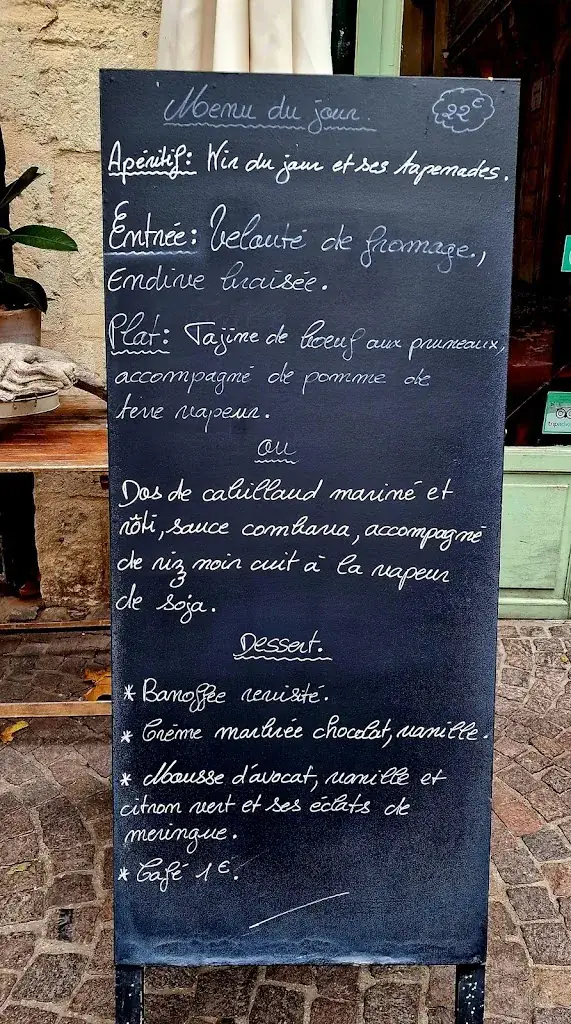 Menu du jour.
22€
Apéritif: Vin du jour et ses tapenades.
Entrée: Velouté de fromage,
Endive braisée.
Plat: Tajine de boeuf aux pruneaux,
accompagné de pomme de
terre vapeur.
ou
Dos de cabillaud mariné et
rôti, sauce combava, accompagné
de riz noir cuit à la vapeur
de soja.
Dessert.
* Banoffee revisité.
* Crème marbrée chocolat, vanille.
* Mousse d'avocat, vanille et
citron vert et ses éclats de
meringue.
* Café 1€.